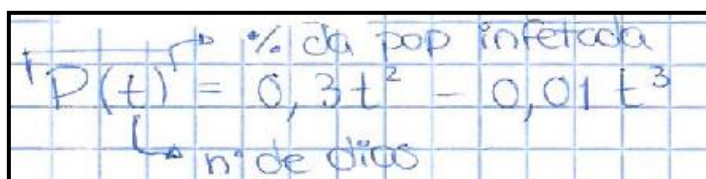 % da pop infetada
P(t) = 0,3t² - 0,01t³
nº de dias